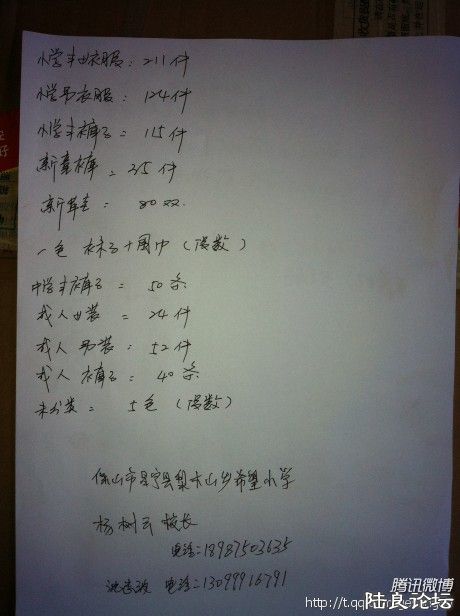 小学生女衣服：211件
小学男衣服：124件
小学生裤子：115件
新童裤：35件
新鞋：80双
一包 袜子+围巾（没数）
中学生裤子：50条
成人女装：24件
成人男装：52件
成人裤子：40条
未分类：5包（没数）
保山市昌宁县梨木山乡希望小学
杨树云校长
电话：18987503635
电话：13099916791
腾讯微博
http://t.qq.com/
陆良论坛